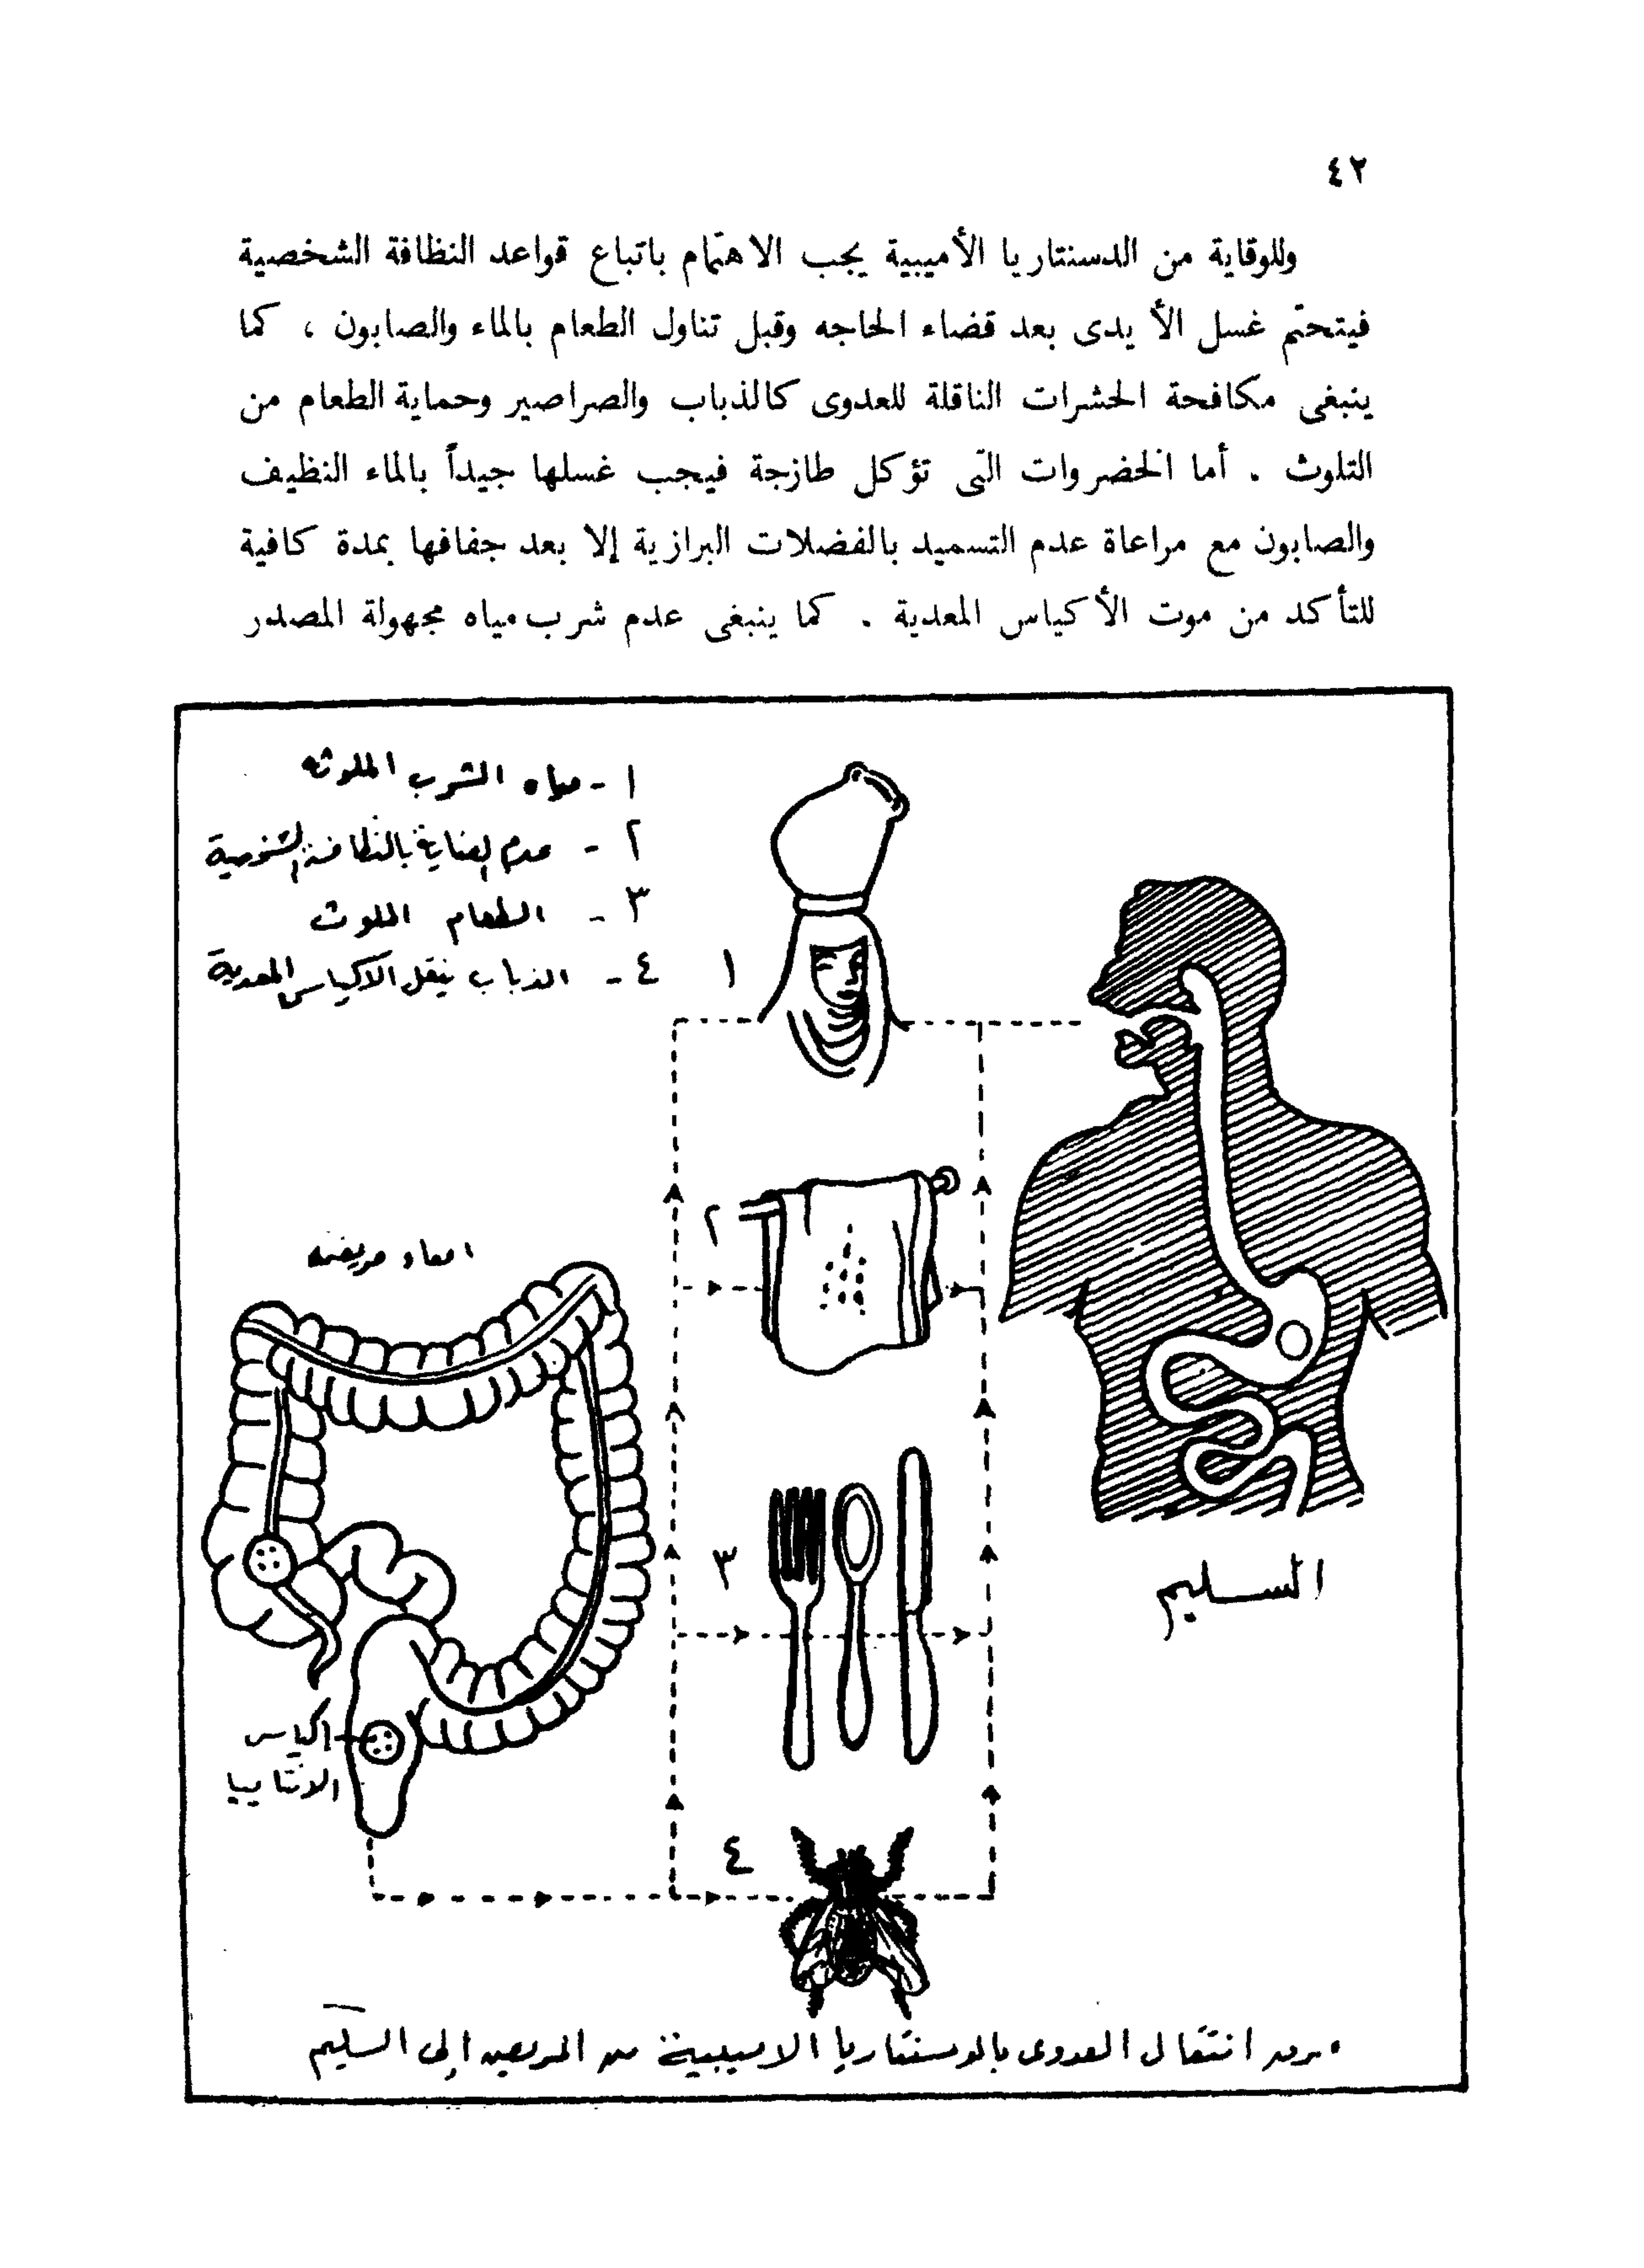 ٤٢
وللوقاية من الدسنتاريا الأميبية يجب الاهتمام باتباع قواعد النظافة الشخصية
فيتحتم غسل الأيدى بعد قضاء الحاجه وقبل تناول الطعام بالماء والصابون ، كما
ينبغى مكافحة الحشرات الناقلة للعدوى كالذباب والصراصير وحماية الطعام من
التلوث . أما الخضروات التى تؤكل طازجة فيجب غسلها جيداً بالماء النظيف
والصابون مع مراعاة عدم التسميد بالفضلات البرازية إلا بعد جفافها بمدة كافية
للتأكد من موت الأكياس المعدية . كما ينبغى عدم شرب مياه مجهولة المصدر
١ - مياه الشرب الملوثه
٢ - عدم العناية بالنظافة الشخصية
٣ - الطعام الملوث
٤ - الذباب ينقل الاكياس المعدية
١
٢
امعاء مريضه
٣
السليم
اكياس
الانتاميبا
٤
انتقال العدوى بالدوسنتاريا الاميبية من المريض إلى السليم